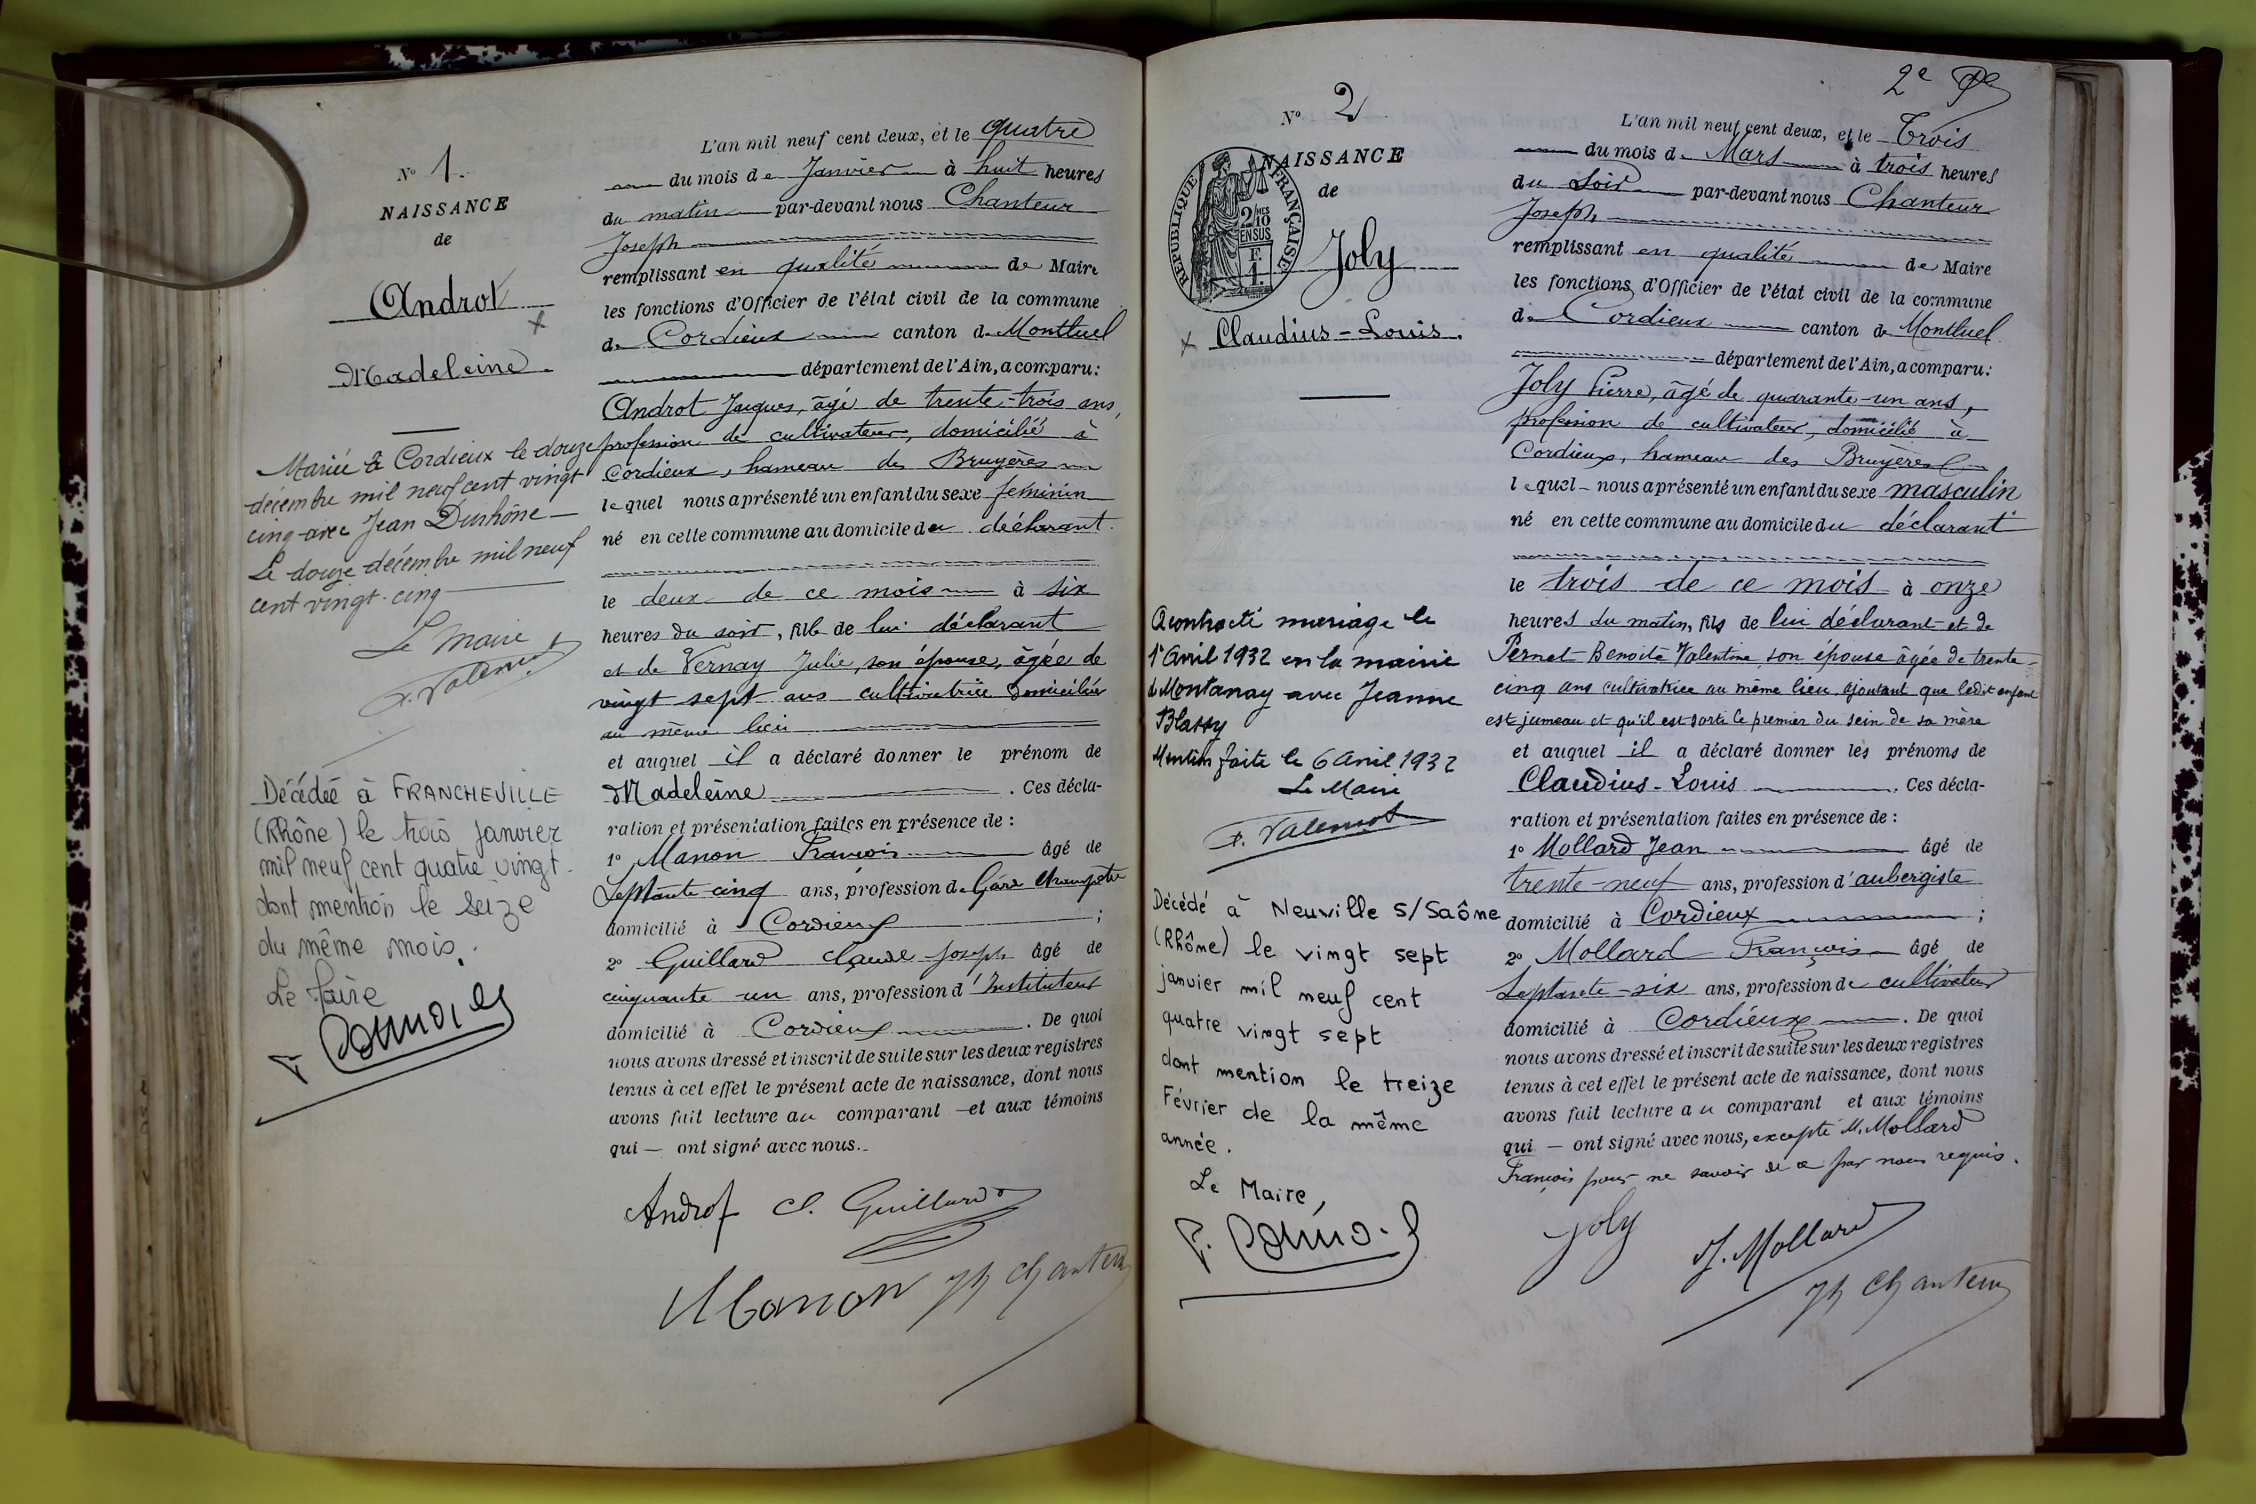 N° 1.
NAISSANCE
de
Androt
Madeleine.
Mariée à Cordieux le douze
décembre mil neuf cent vingt
cinq avec Jean Durhône
Le douze décembre mil neuf
cent vingt-cinq
Le Maire
Décédée à FRANCHEVILLE
(Rhône) le trois janvier
mil neuf cent quatre vingt
dont mention le seize
du même mois.
Le Maire
L'an mil neuf cent deux, et le quatre
du mois de Janvier à huit heures
du matin par-devant nous Chanteur
Joseph
remplissant en qualité de Maire
les fonctions d'Officier de l'état civil de la commune
de Cordieux canton de Montluel
département de l'Ain, a comparu:
Androt Jacques, âgé de trente-trois ans,
profession de cultivateur, domicilié à
Cordieux, hameau des Bruyères
lequel nous a présenté un enfant du sexe féminin
né en cette commune au domicile du déclarant.
le deux de ce mois à six
heures du soir, fille de lui déclarant
et de Vernay Julie, son épouse, âgée de
vingt sept ans cultivatrice domiciliée
au même lieu
et auquel il a déclaré donner le prénom de
Madeleine. Ces décla-
ration et présentation faites en présence de :
1° Manon François âgé de
Septante-cinq ans, profession de Garde champêtre
domicilié à Cordieux ;
2° Guillard Claude Joseph âgé de
cinquante un ans, profession d'Instituteur
domicilié à Cordieux. De quoi
nous avons dressé et inscrit de suite sur les deux registres
tenus à cet effet le présent acte de naissance, dont nous
avons fait lecture au comparant et aux témoins
qui ont signé avec nous.
Androt Cl. Guillard
Manon Jh Chanteur
2e Pe
N° 2
NAISSANCE
de
RÉPUBLIQUE FRANÇAISE
2/10 EN SUS
F. 1.
Joly
Claudius-Louis.
A contracté mariage le
1er Avril 1932 en la mairie
de Montanay avec Jeanne
Mention faite le 6 avril 1932
Le Maire
Décédé à Neuville S/Saône
(Rhône) le vingt sept
janvier mil neuf cent
quatre vingt sept
dont mention le treize
Février de la même
année.
Le Maire,
L'an mil neuf cent deux, et le Trois
du mois de Mars à trois heures
du Soir par-devant nous Chanteur
Joseph
remplissant en qualité de Maire
les fonctions d'Officier de l'état civil de la commune
de Cordieux canton de Montluel
département de l'Ain, a comparu:
Joly Pierre, âgé de quarante-un ans,
profession de cultivateur, domicilié à
Cordieux, hameau des Bruyères
lequel nous a présenté un enfant du sexe masculin
né en cette commune au domicile du déclarant
le trois de ce mois à onze
heures du matin, fils de lui déclarant et de
Pernet Benoîte Valentine son épouse âgée de trente-
cinq ans cultivatrice au même lieu, ajoutant que ledit enfant
est jumeau et qu'il est sorti le premier du sein de sa mère
et auquel il a déclaré donner les prénoms de
Claudius-Louis. Ces décla-
ration et présentation faites en présence de :
1° Mollard Jean âgé de
trente-neuf ans, profession d'aubergiste
domicilié à Cordieux ;
2° Mollard François âgé de
Septante-six ans, profession de cultivateur
domicilié à Cordieux. De quoi
nous avons dressé et inscrit de suite sur les deux registres
tenus à cet effet le présent acte de naissance, dont nous
avons fait lecture au comparant et aux témoins
qui — ont signé avec nous, excepté M. Mollard
François pour ne savoir de ce par nous requis.
Joly J. Mollard
Jh Chanteur